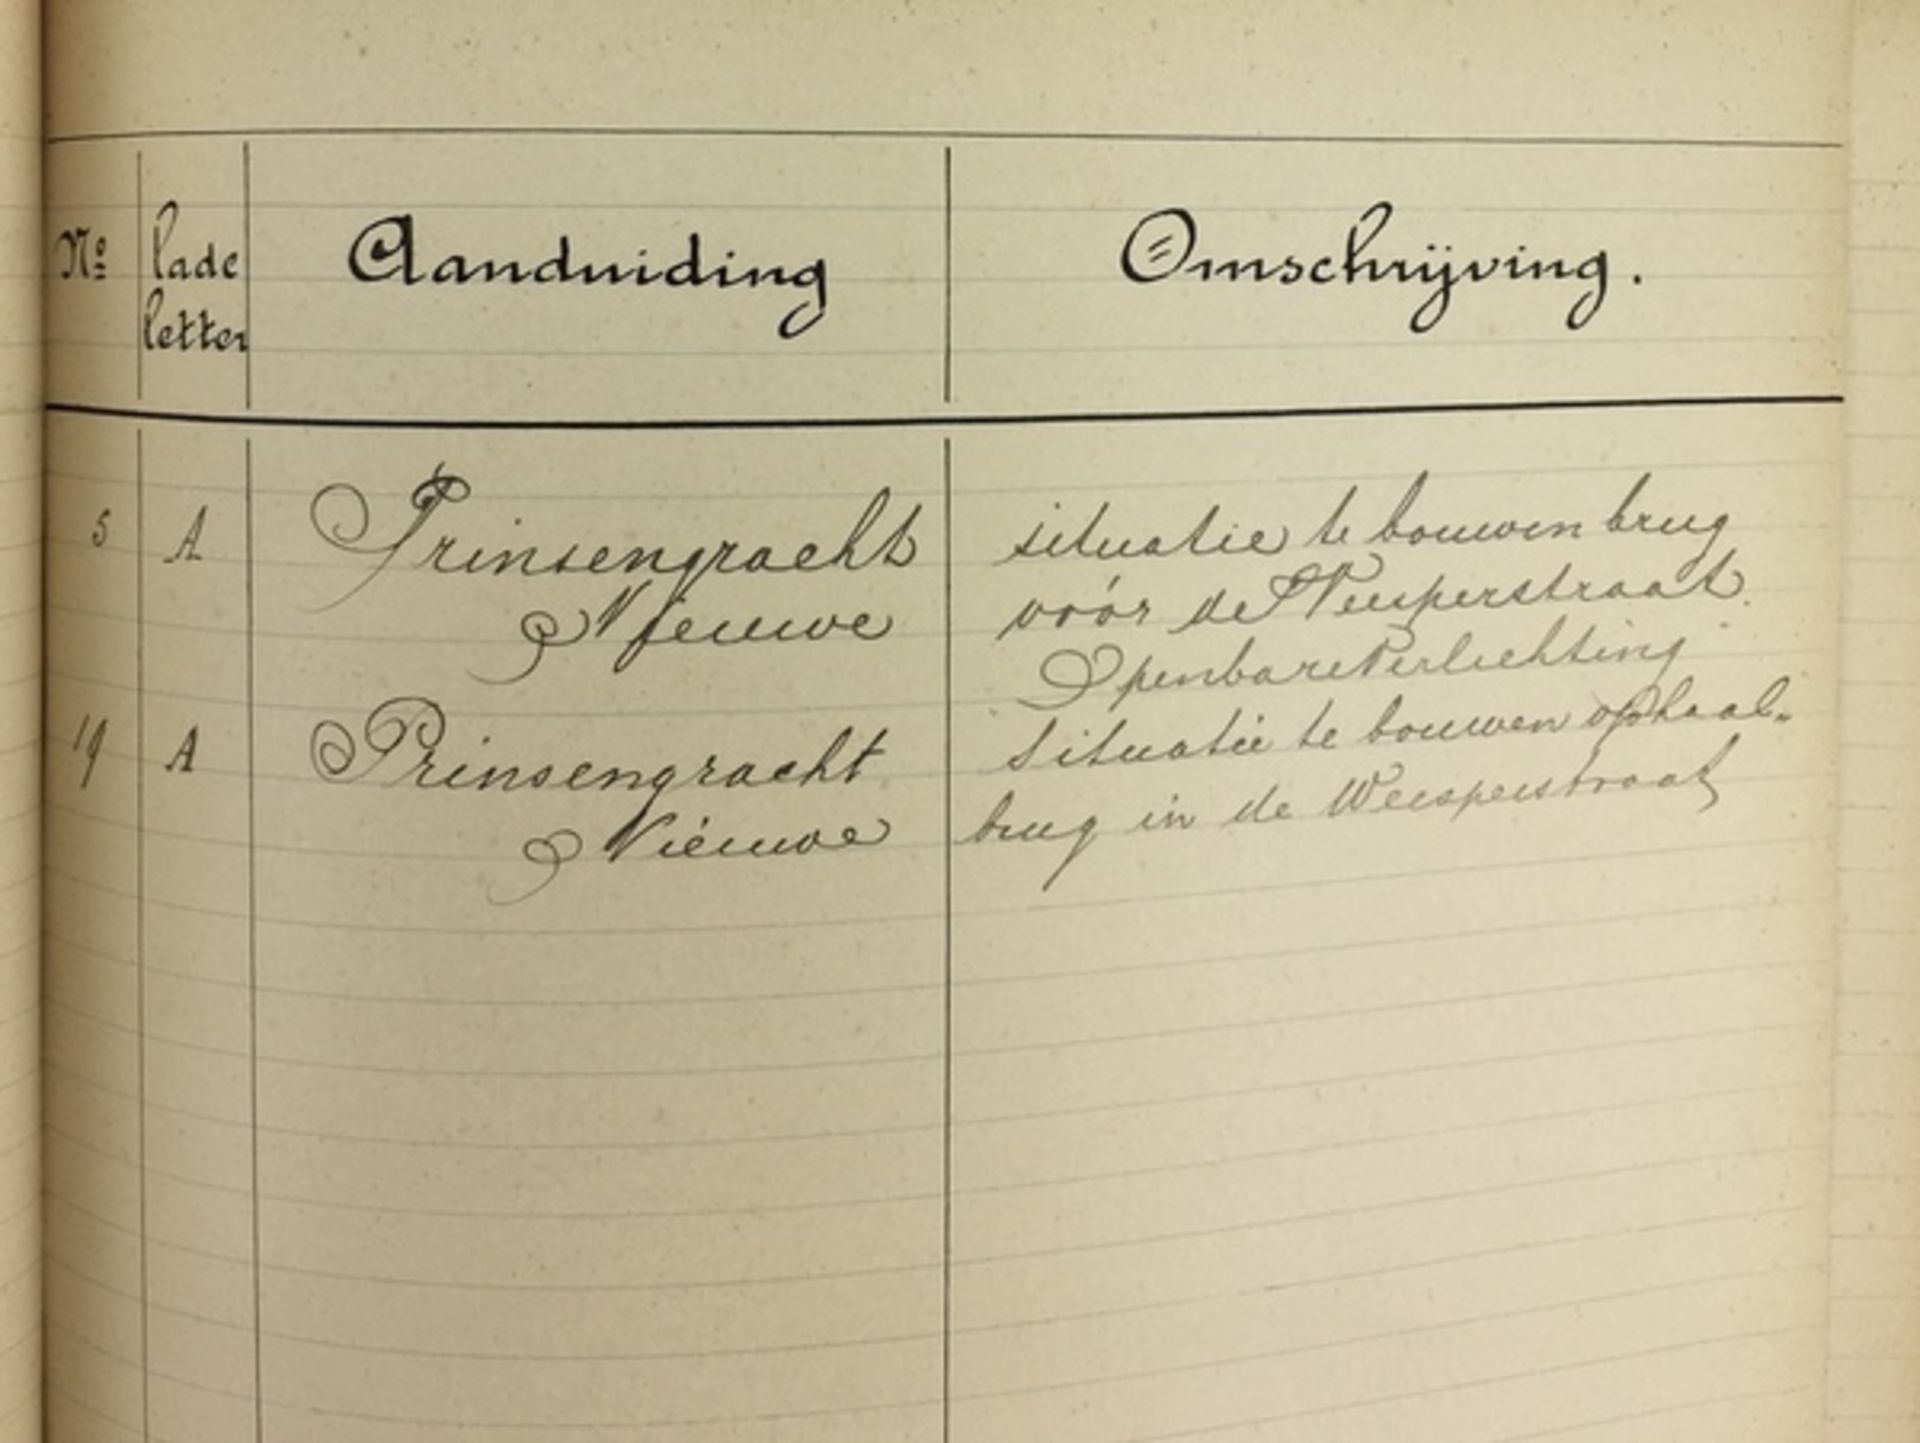 No lade Aanduiding Omschrijving.
letter
5 A Prinsengracht situatie te bouwen brug
Nieuwe vóór de Weesperstraat.
Openbare Verlichting
19 A Prinsengracht situatie te bouwen ophaal-
Nieuwe brug in de Weesperstraat